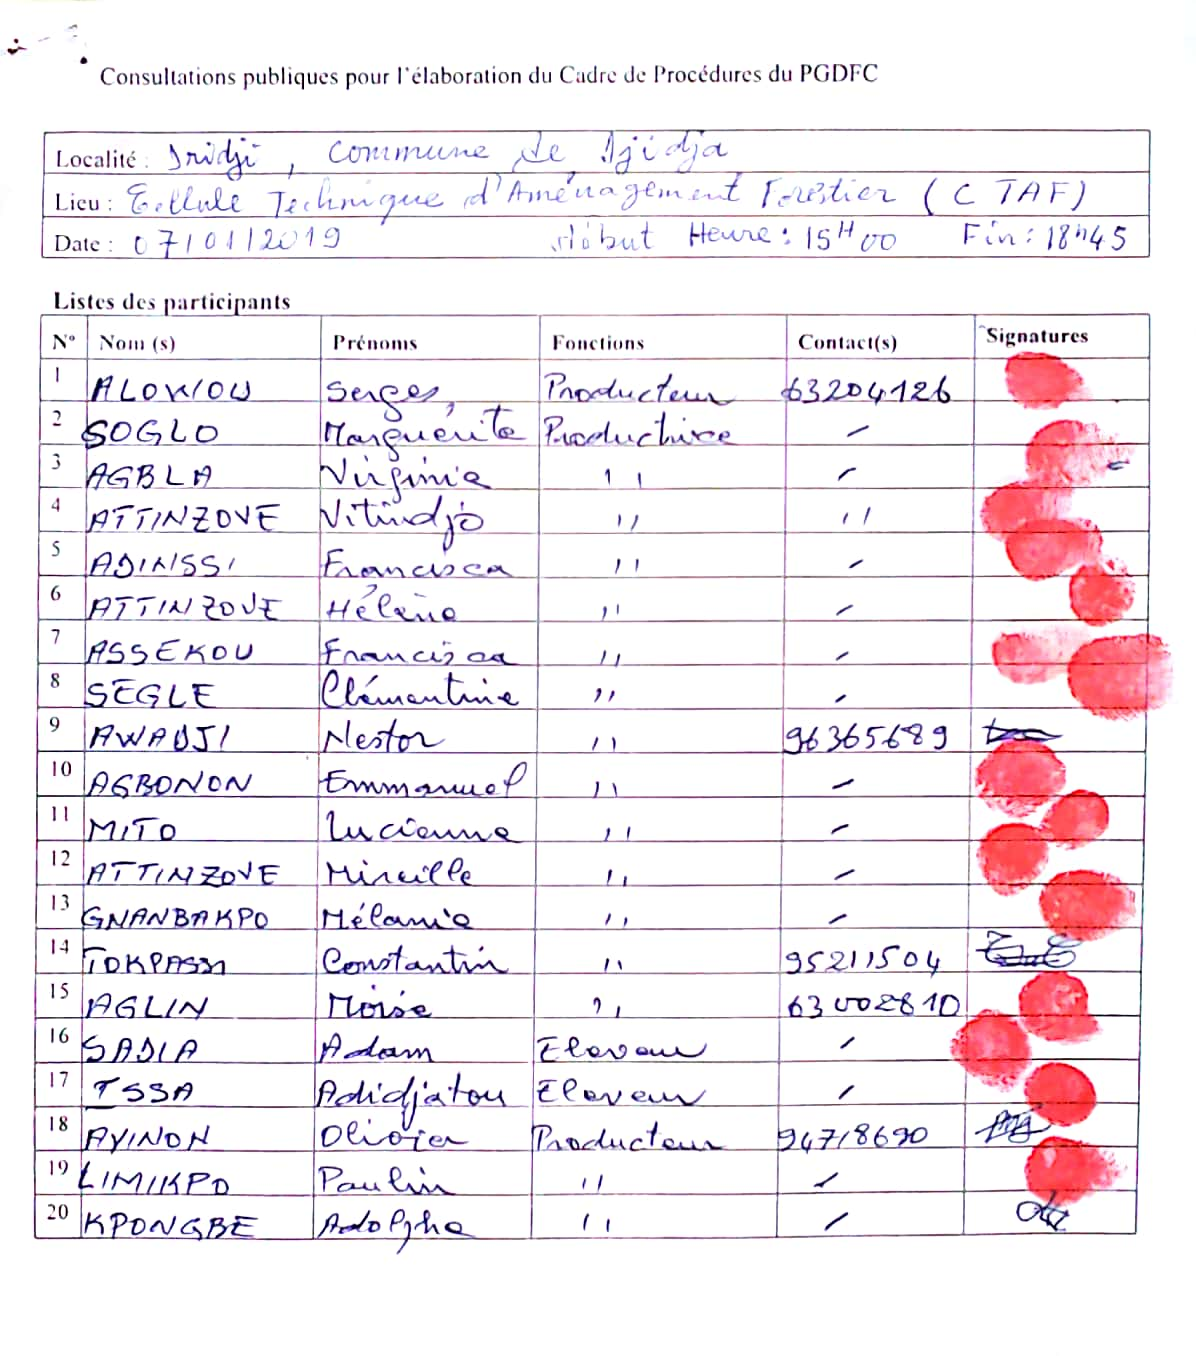 Consultations publiques pour l'élaboration du Cadre de Procédures du PGDFC
Localité : Dridji, Commune de Djidja
Lieu : Cellule Technique d'Aménagement Forestier (CTAF)
Date : 07/01/2019 début Heure : 15H00 Fin : 18H45
Listes des participants
N° Nom (s) Prénoms Fonctions Contact(s) Signatures
1 ALOWOU Serges, Producteur 63204126
2 SOGLO Marguérite Productrice -
3 AGBLA Virginie '' -
4 ATTINZOVE Vitindjo '' ''
5 ADINSSI Francisca '' -
6 ATTINZOVE Hélène '' -
7 ASSEKOU Francisca '' -
8 SEGLE Clémentine '' -
9 AWADJI Nestor '' 96365689
10 AGBONON Emmanuel '' -
11 MITO Lucienne '' -
12 ATTINZOVE Mireille '' -
13 GNANBAKPO Mélanie '' -
14 TOKPASSI Constantin '' 95211504
15 AGLIN Moïse '' 63002810
16 SADIA Adam Eleveur -
17 ISSA Adidjatou Eleveur -
18 AYINON Olivier Producteur 94718690
19 LIMIKPO Paulin '' -
20 KPONGBE Adolphe '' -